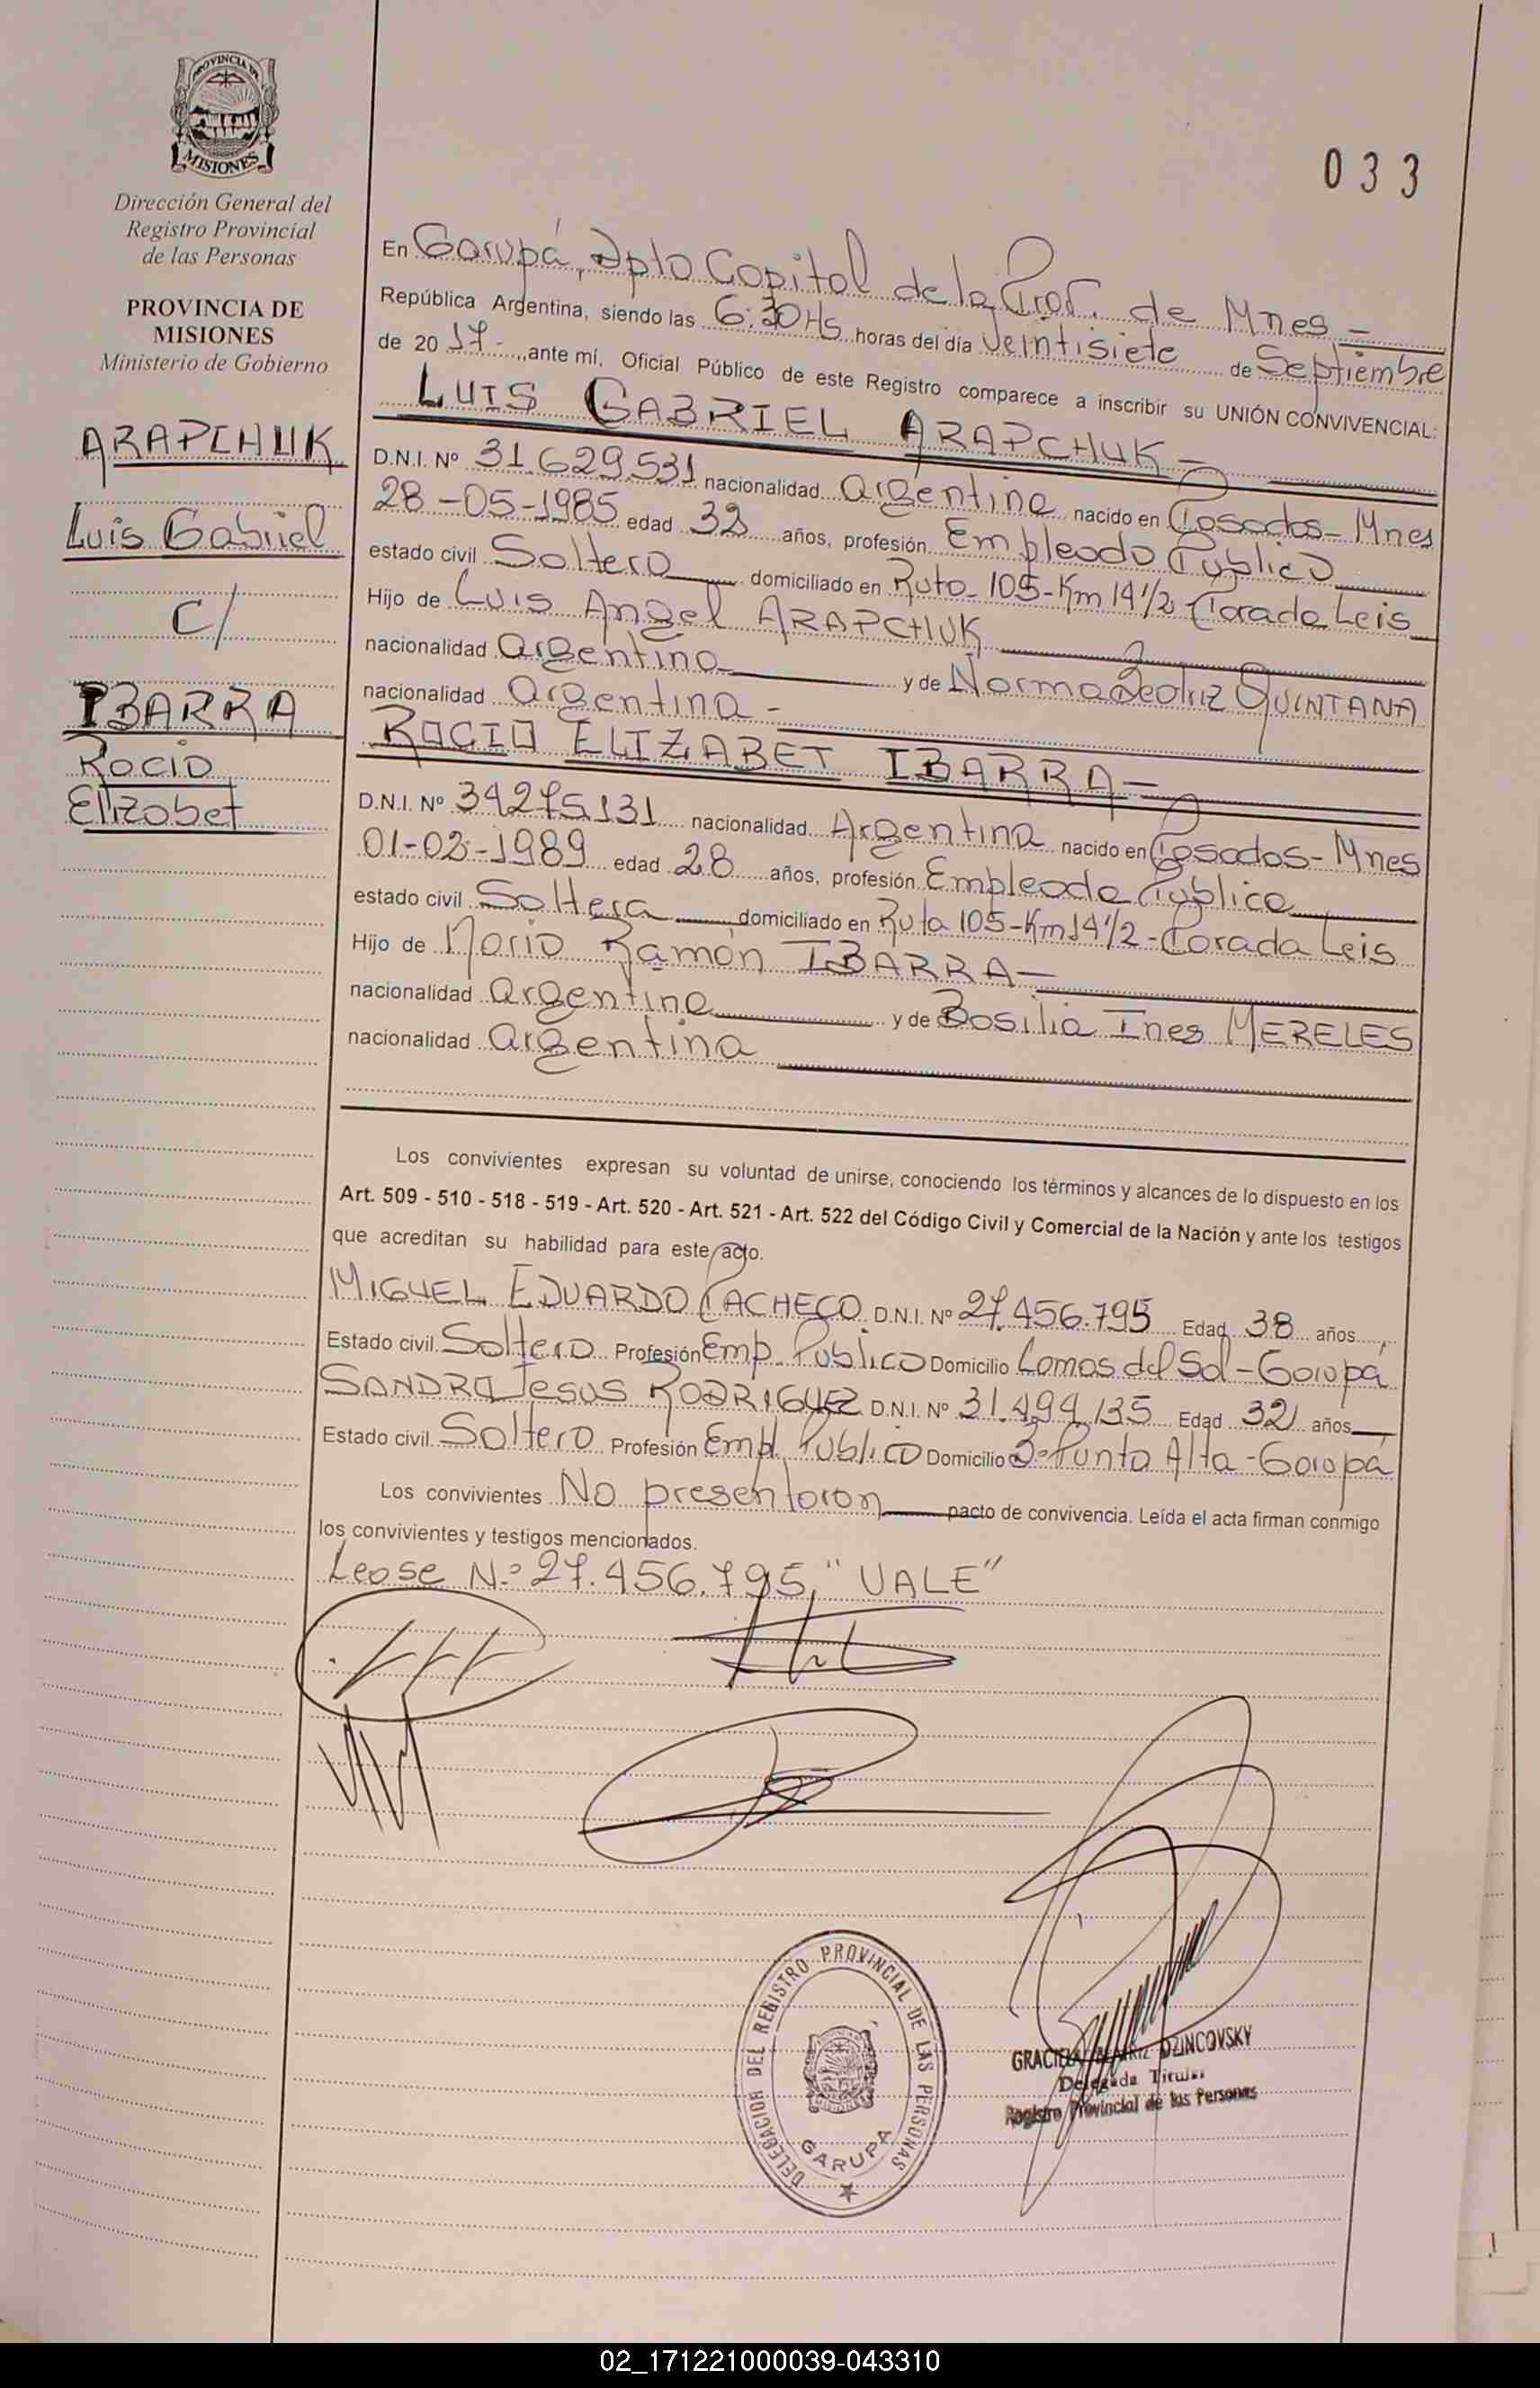 PROVINCIA DE
MISIONES
Dirección General del
Registro Provincial
de las Personas
PROVINCIA DE
MISIONES
Ministerio de Gobierno
ARAPCHUK
Luis Gabriel
c/
IBARRA
Rocio
Elizabet
033
En Garupá, Dpto Capital de la Prov. de Mnes -
República Argentina, siendo las 6:30 Hs horas del día Veintisiete de Septiembre
de 20 17 - , ante mí, Oficial Público de este Registro comparece a inscribir su UNIÓN CONVIVENCIAL:
LUIS GABRIEL ARAPCHUK -
D.N.I. Nº 31.629.531 nacionalidad Argentina nacido en Posadas - Mnes
28-05-1985 edad 32 años, profesión Empleado Publico
estado civil Soltero domiciliado en Ruta 105-Km 14 1/2 - Parada Leis
Hijo de Luis Angel ARAPCHUK
nacionalidad Argentina y de Norma Beatriz QUINTANA
nacionalidad Argentina -
ROCIO ELIZABET IBARRA -
D.N.I. Nº 34275131 nacionalidad Argentina nacido en Posadas - Mnes
01-03-1989 edad 28 años, profesión Empleada Publica
estado civil Soltera domiciliado en Ruta 105-Km 14 1/2 - Parada Leis
Hijo de Mario Ramón IBARRA -
nacionalidad Argentina y de Basilia Ines MERELES
nacionalidad Argentina
Los convivientes expresan su voluntad de unirse, conociendo los términos y alcances de lo dispuesto en los
Art. 509 - 510 - 518 - 519 - Art. 520 - Art. 521 - Art. 522 del Código Civil y Comercial de la Nación y ante los testigos
que acreditan su habilidad para este acto.
MIGUEL EDUARDO PACHECO D.N.I. Nº 27.456.795 Edad 38 años,
Estado civil Soltero Profesión Emp. Publico Domicilio Lomas del Sol - Garupá
SANDRO JESUS RODRIGUEZ D.N.I. Nº 31.494.135 Edad 32 años
Estado civil Soltero Profesión Empl. Publico Domicilio Bº Punta Alta - Garupá
Los convivientes No presentaron pacto de convivencia. Leída el acta firman conmigo
los convivientes y testigos mencionados.
Lease N.º 27.456.795, "VALE"
DELEGACION DEL REGISTRO PROVINCIAL DE LAS PERSONAS
GARUPA
GRACIELA BEATRIZ DZINCOVSKY
Delegada Titular
Registro Provincial de las Personas
02_171221000039-043310